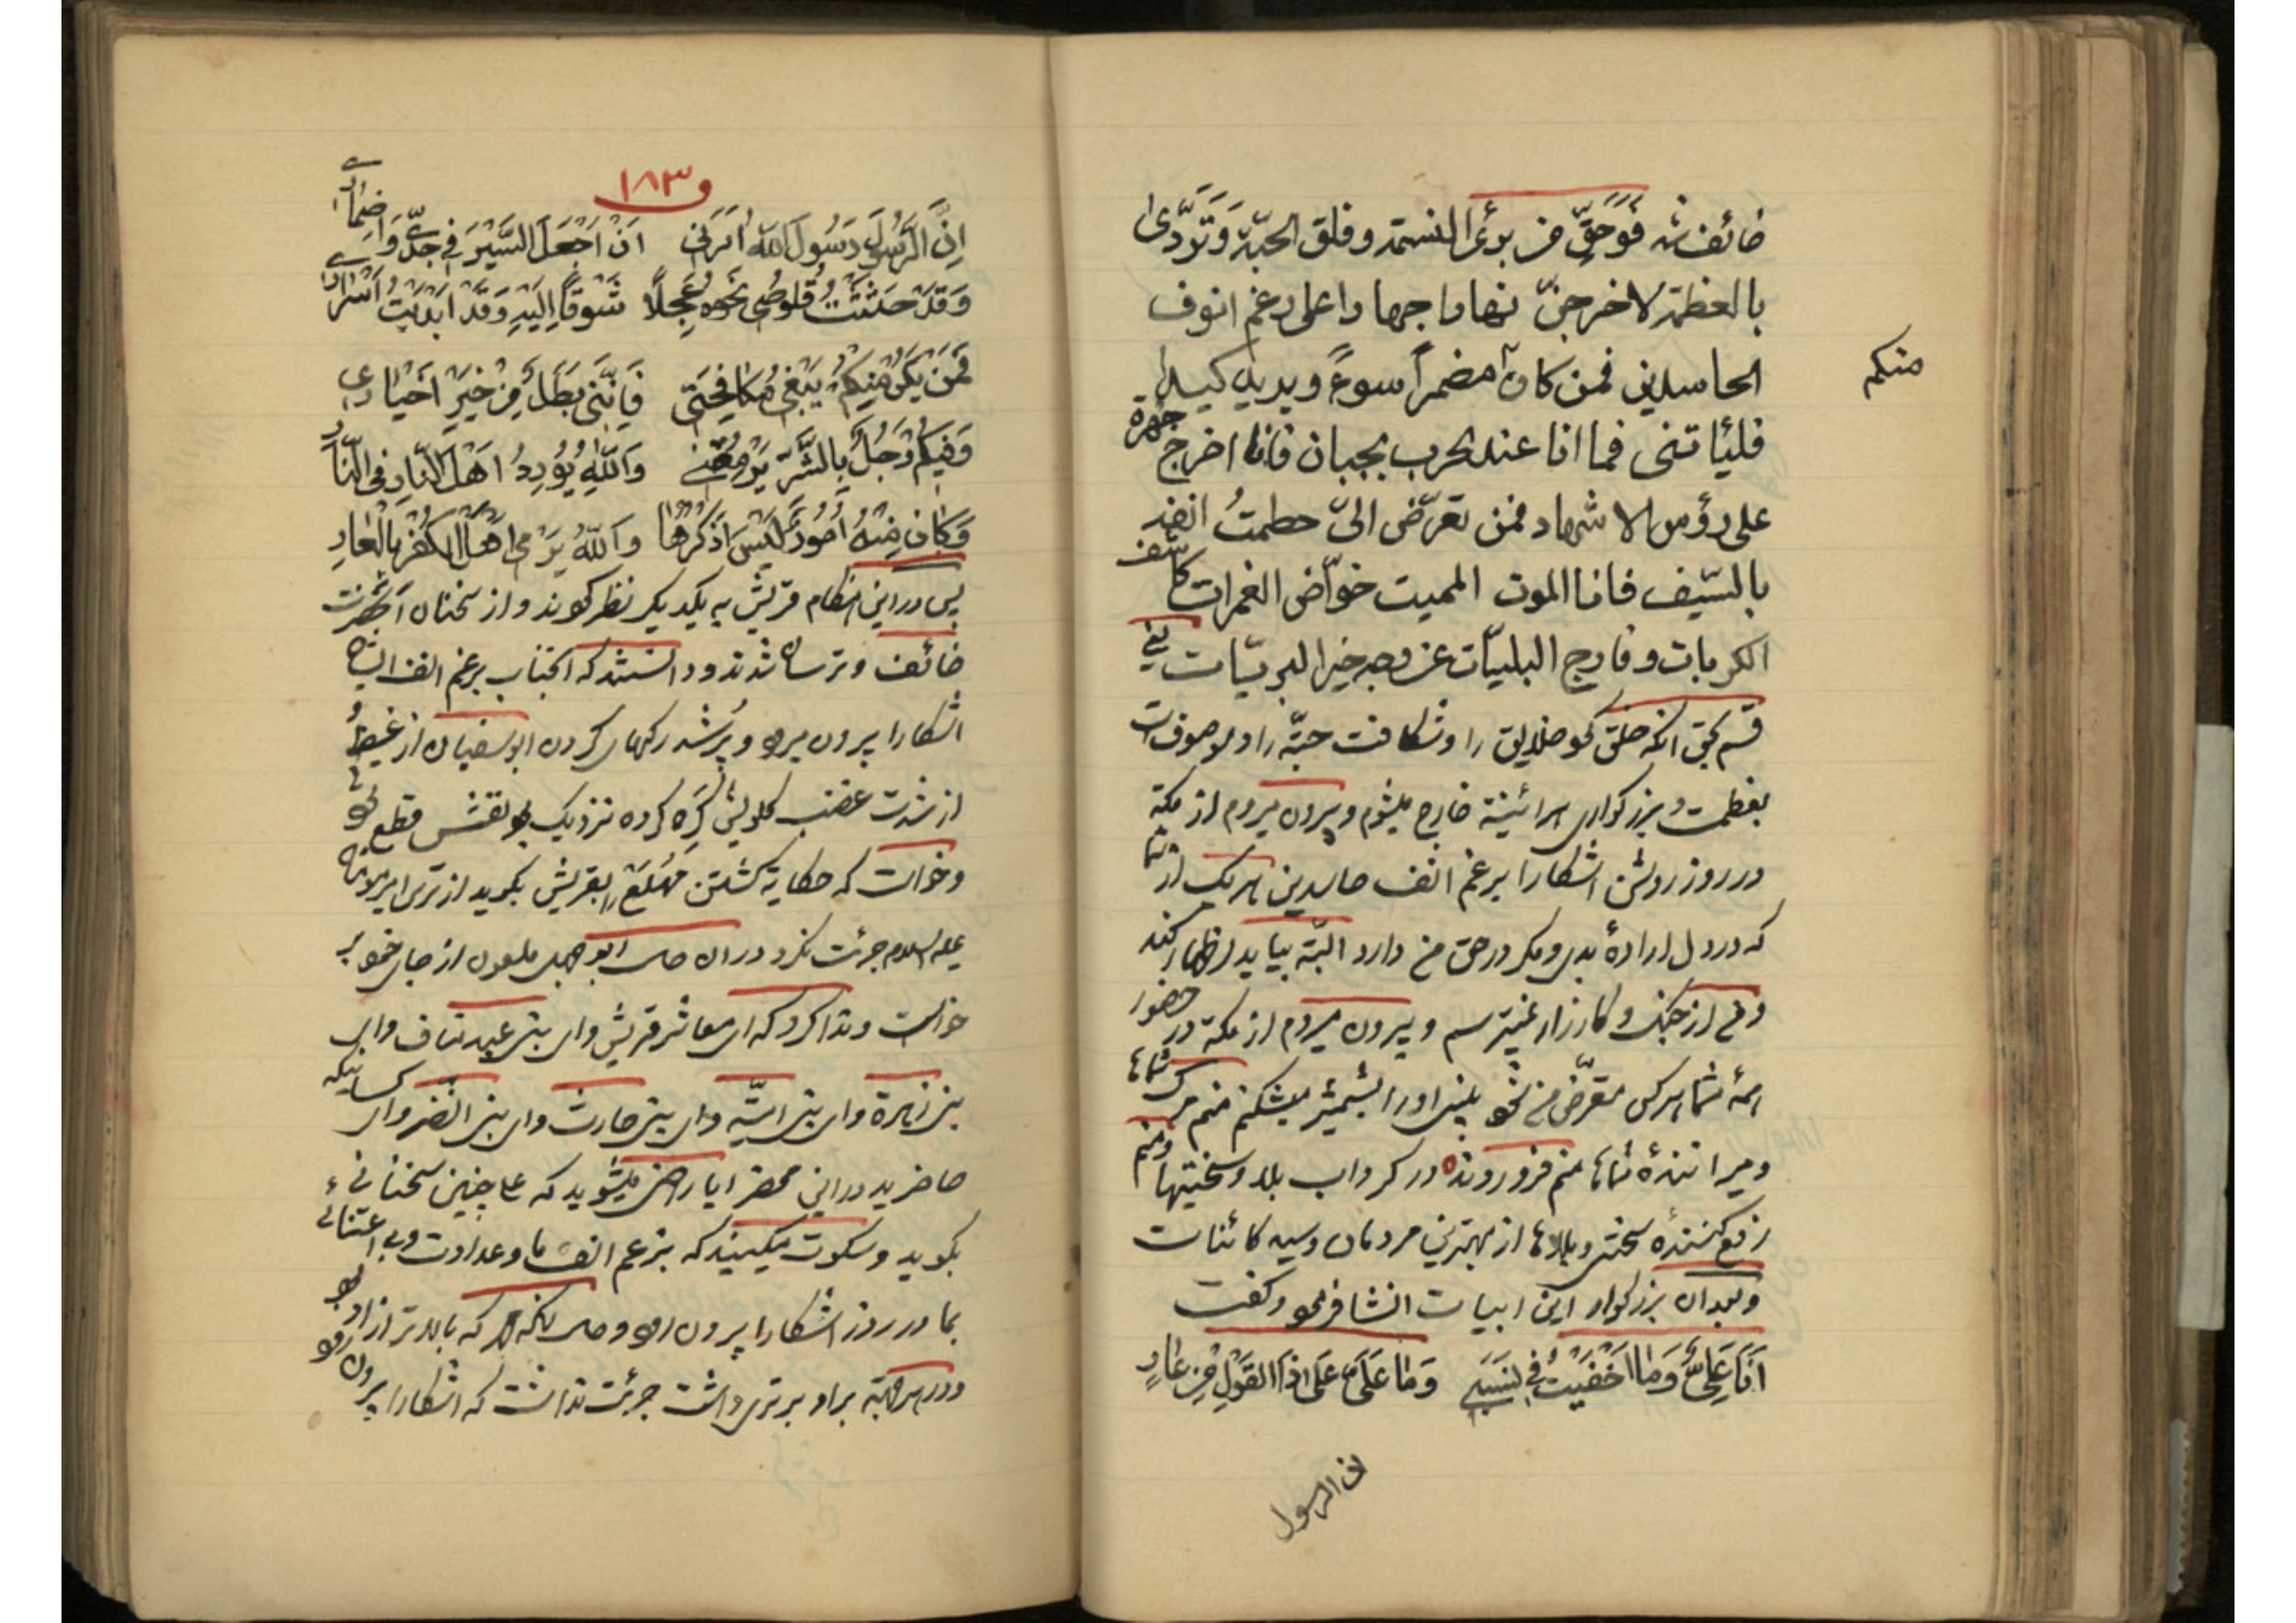 خائف شد فَوَحَقِّ من برئ النسمة وفلق الحبّة وَتَرَدّى
بالعظمة لاخرجنّ نهارا جهارا على رغم انوف
الحاسدين فمن كان مضمراً سوءً ويريد كيدا
منكم
فليأتنى فما انا عند الحرب بجبان فانا اخرج جهرة
على رؤس الاشهاد فمن تعرّض الىّ حطمتُ انفه
بالسّيف فانا الموت المميت خوّاض الغمرات كاشف
الكربات وفارج البليّات عن وجه خير البريّات يعنے
قسم بحق انكه خلق نمود خلايق را وشكافت حبّه را و موصوف است
بعظمت و بزركوارى هرائينه خارج ميشوم و بيرون ميروم از مكّه
در روز روشن اشكارا برغم انف حاسدين هر يك از شما
كه در دل ارادهٔ بدى و مكر در حق من دارد البتّه بيايد اظهار كند
و من از جنك و كارزار نميترسم و بيرون ميروم از مكّه در حضور
همهٔ شما هر كس متعرّض من شود بينى او را بشمشير ميشكنم منم مرك شماها
و ميرانندهٔ شماها منم فرو رونده در كرداب بلا و سختيها و منم
رفع كنندهٔ سختى و بلاها از بهترين مردمان و سيد كائنات
و بعد ان بزركوار اين ابيات انشا فرمود و كفت
اَنَا عَلِيٌّ وَمَا اَخْفَيْتُ فِي نَسَبِي وَمَا عَلَيَّ عَلَى اذَا القَوْلِ مِنْ عَارٍ
ان الرسول
و ١٨٣
اِنَّ الرَّسُولَ رَسُولَ اللّٰهِ اَمَرَنِى اَنْ اَجْعَلَ السَّيْرَ فِي جِدٍّ وَاِضْمَارِي
وَقَدْ حَثَثْتُ قُلُوصِي نَحْوَهُ عَجِلًا شَوْقًا اِلَيْهِ وَقَدْ اَبْدَيْتُ اَسْرَارِي
فَمَنْ يَكُنْ مِنْكُمْ يَبْغِي مُكَافَحَتِي فَاِنَّنِي بَطَلٌ مِنْ خَيْرِ اَخْيَارِي
وَفِيكُمْ رَجُلٌ بِالشَّرِّ يَرْمُقُنِي وَاللّٰهِ يُورِدُ اَهْلَ النَّارِ فِى النَّارِ
وَكَانَ مِنْهُ اُمُورٌ لَيْسَ اَذْكُرُهَا وَاللّٰهُ يَرْمِي اَهْلَ الْكُفْرِ بِالْعَارِ
پس در اين هنكام قريش به يكديكر نظر كردند و از سخنان انحضرت
خائف و ترسان شدند و دانستند كه انجناب برغم انف ايشان
اشكارا بيرون ميرود و پُر شد ركهاى كردن ابو سفيان از غيظ و
از شدت غضب كلويش كره كرده نزديك بود نفسش قطع شود
و خواست كه حكايت كشتن مهلع را بقريش بكويد از ترس امير مومنان
عليه السلام جرئت نكرد در ان حال ابو جهل ملعون از جاى خود بر
خواست و ندا كرد كه اى معاشر قريش و اى بنى عبد مناف و اى
بنى زهرة و اى بنى اميّه و اى بنى حارث و اى بنى النضر و اى كسانيكه
حاضريد در اين محضر ايا راضى ميشويد كه على چنين سخنانى
بكويد و سكوت ميكنيد كه برغم انف ما و عداوت و بى اعتنائى
بما در روز اشكارا بيرون رود و حال انكه كه بالاتر از او بود
و در مرتبه بر او برترى داشت جرئت نداشت كه اشكارا بيرون رود